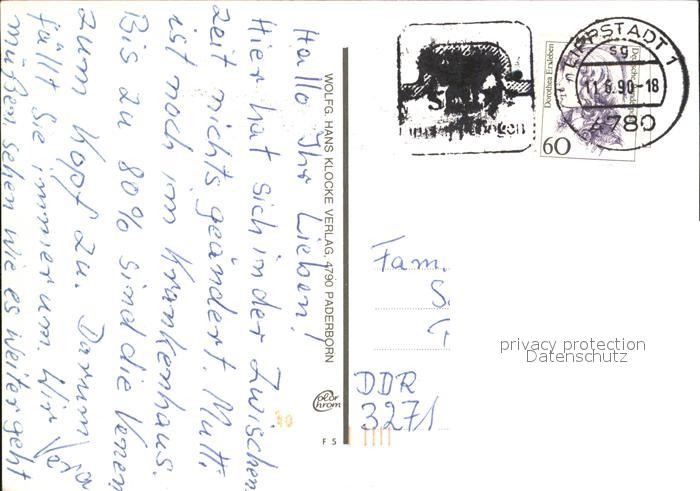 Hallo Ihr Lieben!
Hier hat sich in der Zwischen
zeit nichts geändert. Mutti
ist noch im Krankenhaus.
Bis zu 80% sind die Venen
zum Kopf zu. Darum
fällt sie immer um. Wir
müßen sehen wie es weiter geht
WOLFG. HANS KLOCKE VERLAG, 4790 PADERBORN
color chrom
F 5
LIPPSTADT 1
sg
11.6.90-18
4780
Dorothea Erxleben
Deutsche Bundespost
60
Fam.
S
DDR
3271
privacy protection
Datenschutz